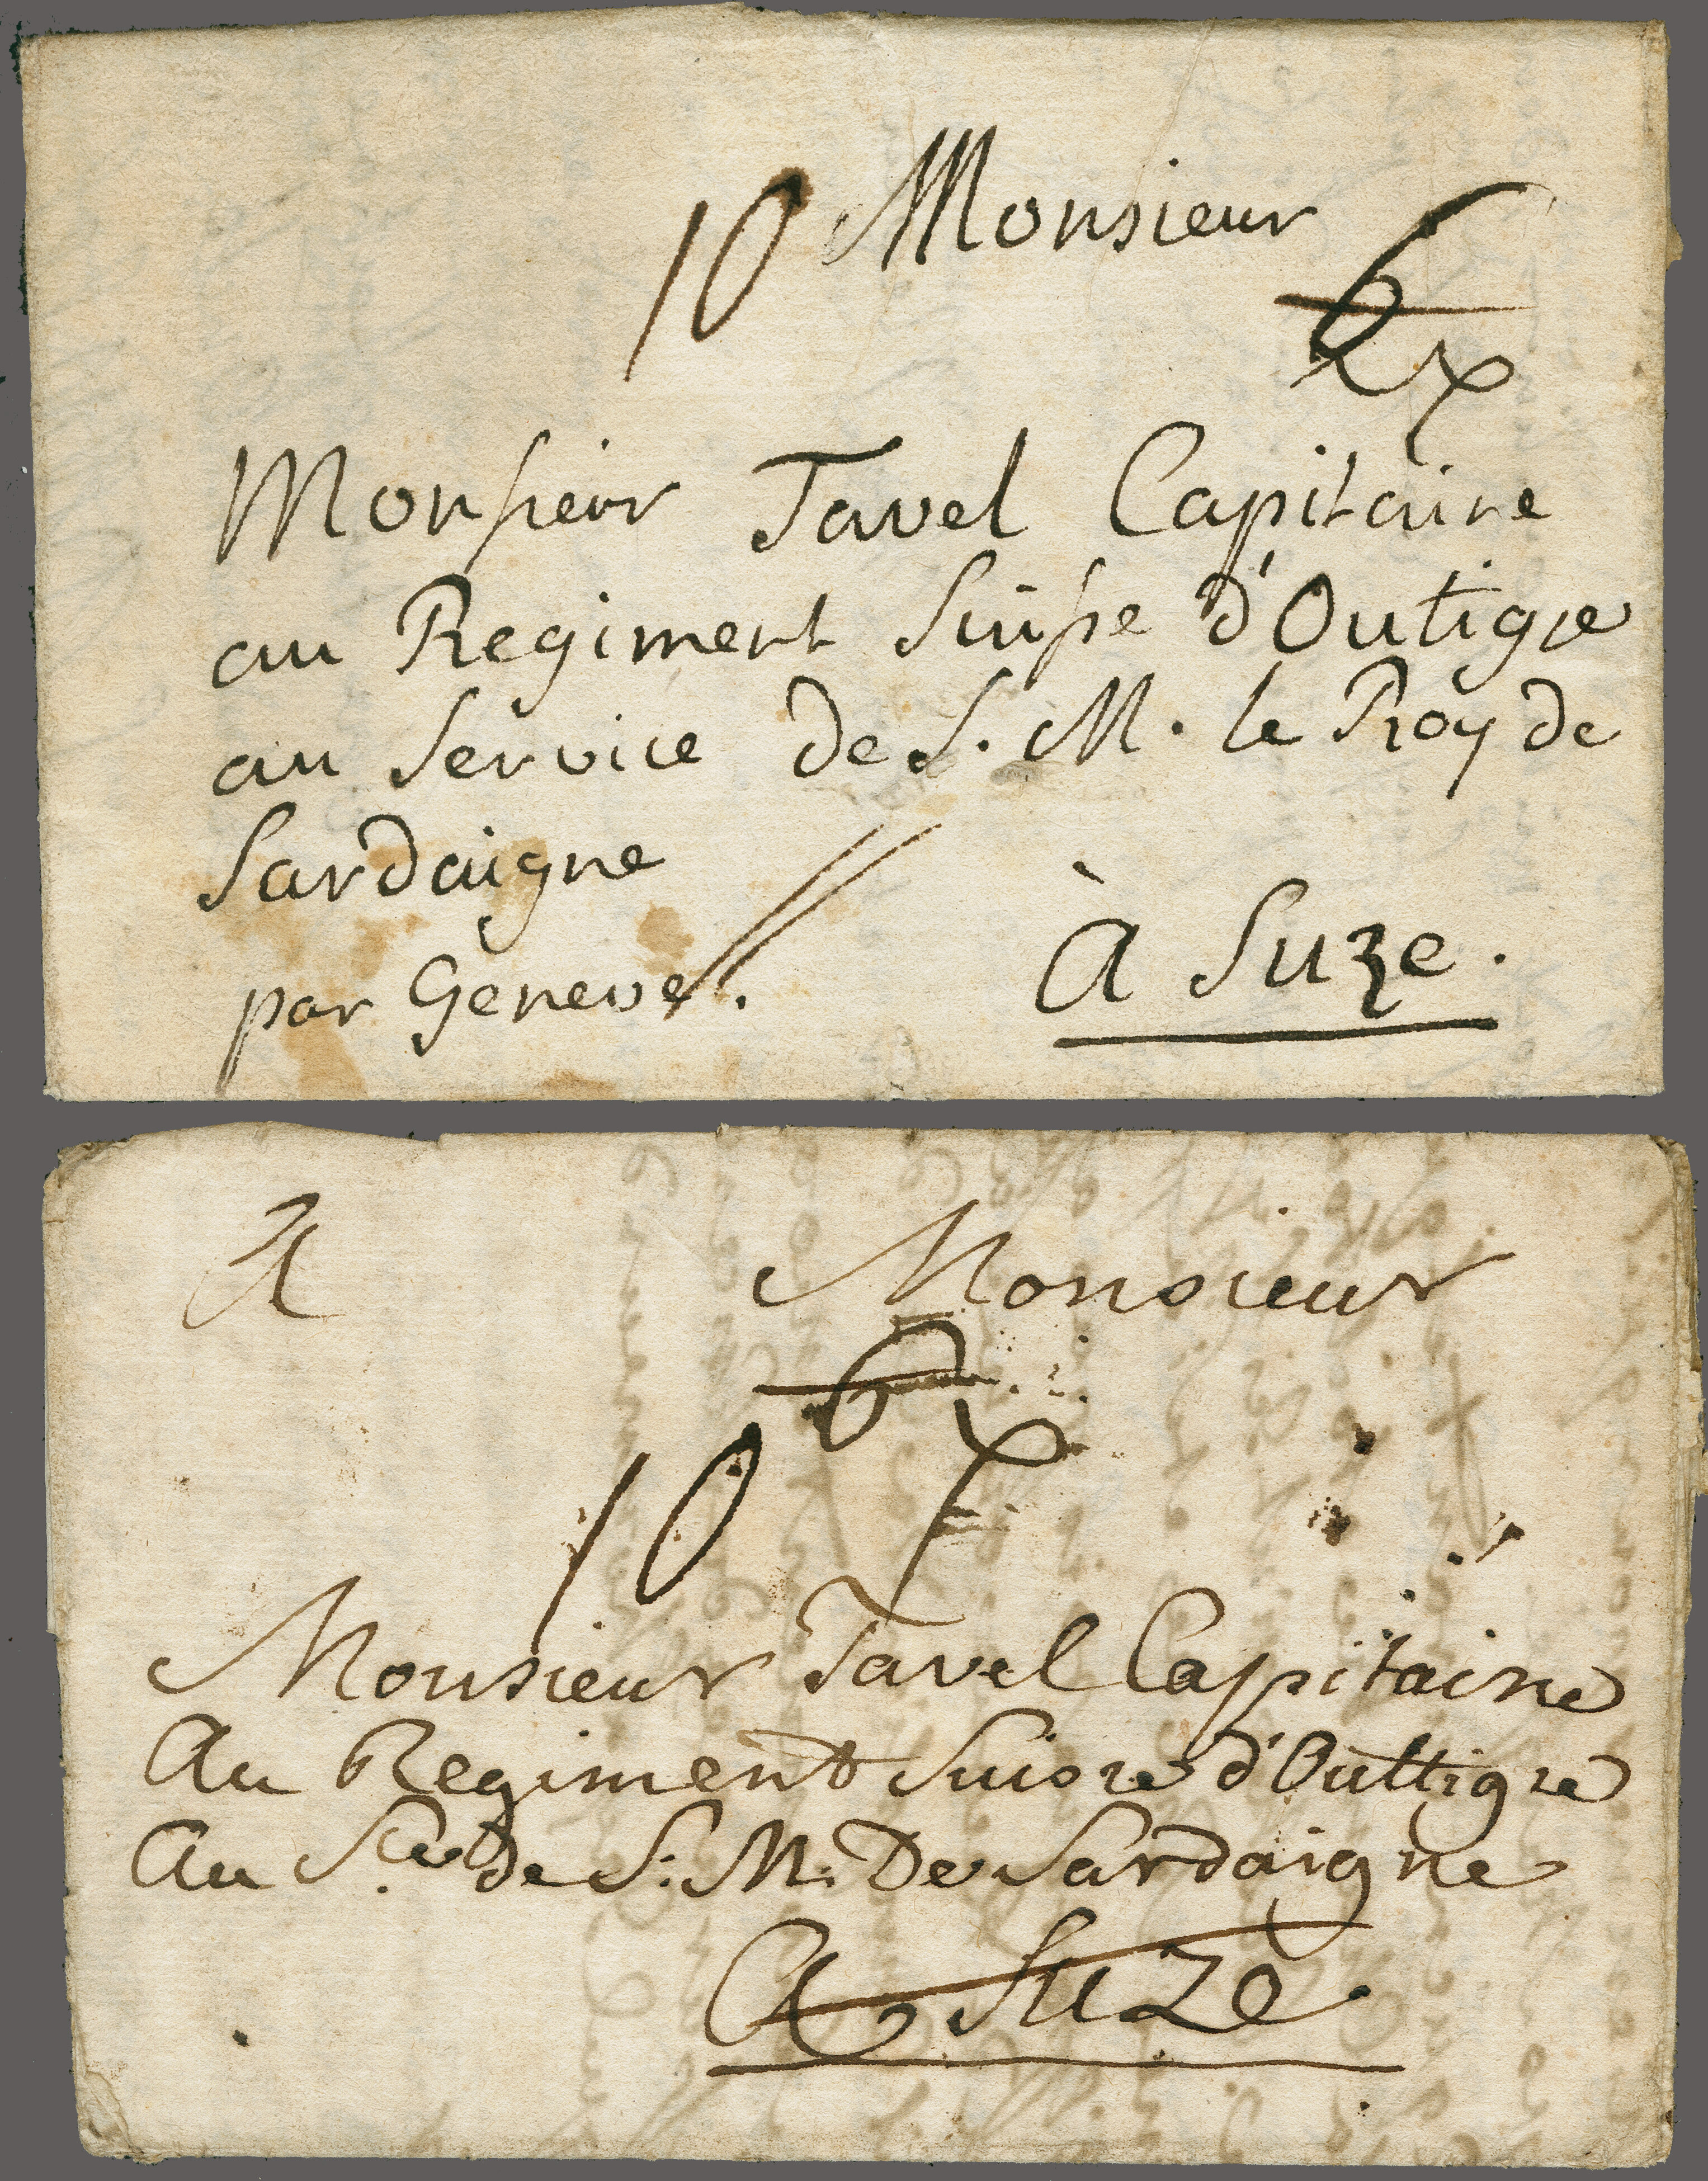 10 Monsieur
6 x
Monsieur Tavel Capitaine
au Regiment Suisse d'Outigre
au Service de S. M. le Roy de
Sardaigne
par Geneve.
à Suze.
A Monsieur
6 x
10
Monsieur Tavel Capitaine
Au Regiment Suisse d'Outtigre
Au S.ce de S: M: De Sardaigne
A Suze.